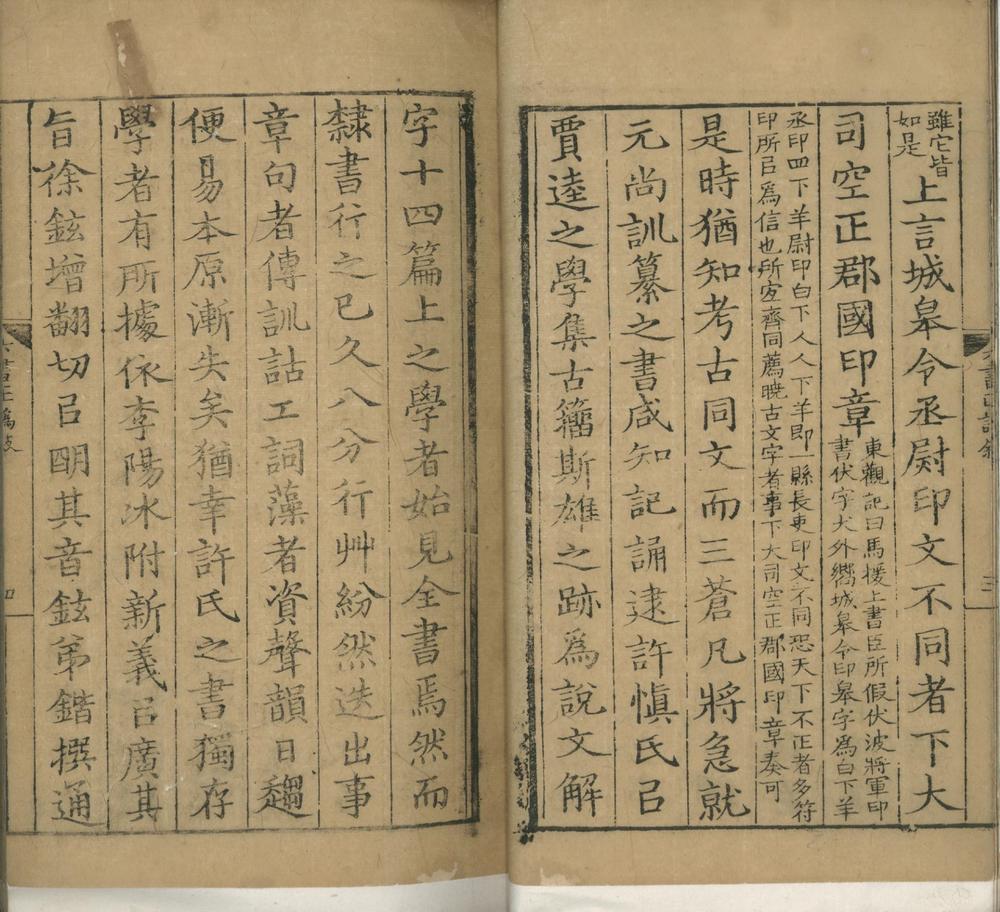 雖它皆
如是
上言城皋令丞尉印文不同者下大
司空正郡國印章
東觀記曰馬援上書臣所假伏波將軍印
書伏字犬外嚮城皋令印皋字爲白下羊
丞印四下羊尉印白下人人下羊即一縣長吏印文不同恐天下不正者多符
印所㠯爲信也所宐齊同薦曉古文字者事下大司空正郡國印章奏可
是時猶知考古同文而三蒼凡將急就
元尚訓纂之書咸知記誦逮許愼氏㠯
賈逵之學集古籒斯雄之跡爲說文解
字十四篇上之學者始見全書焉然而
隸書行之已久八分行艸紛然迭出事
章句者傳訓詁工詞藻者資聲韻日趨
便易本原漸失矣猶幸許氏之書獨存
學者有所據依李陽冰附新義㠯廣其
旨徐鉉增翻切㠯明其音鉉弟鍇撰通